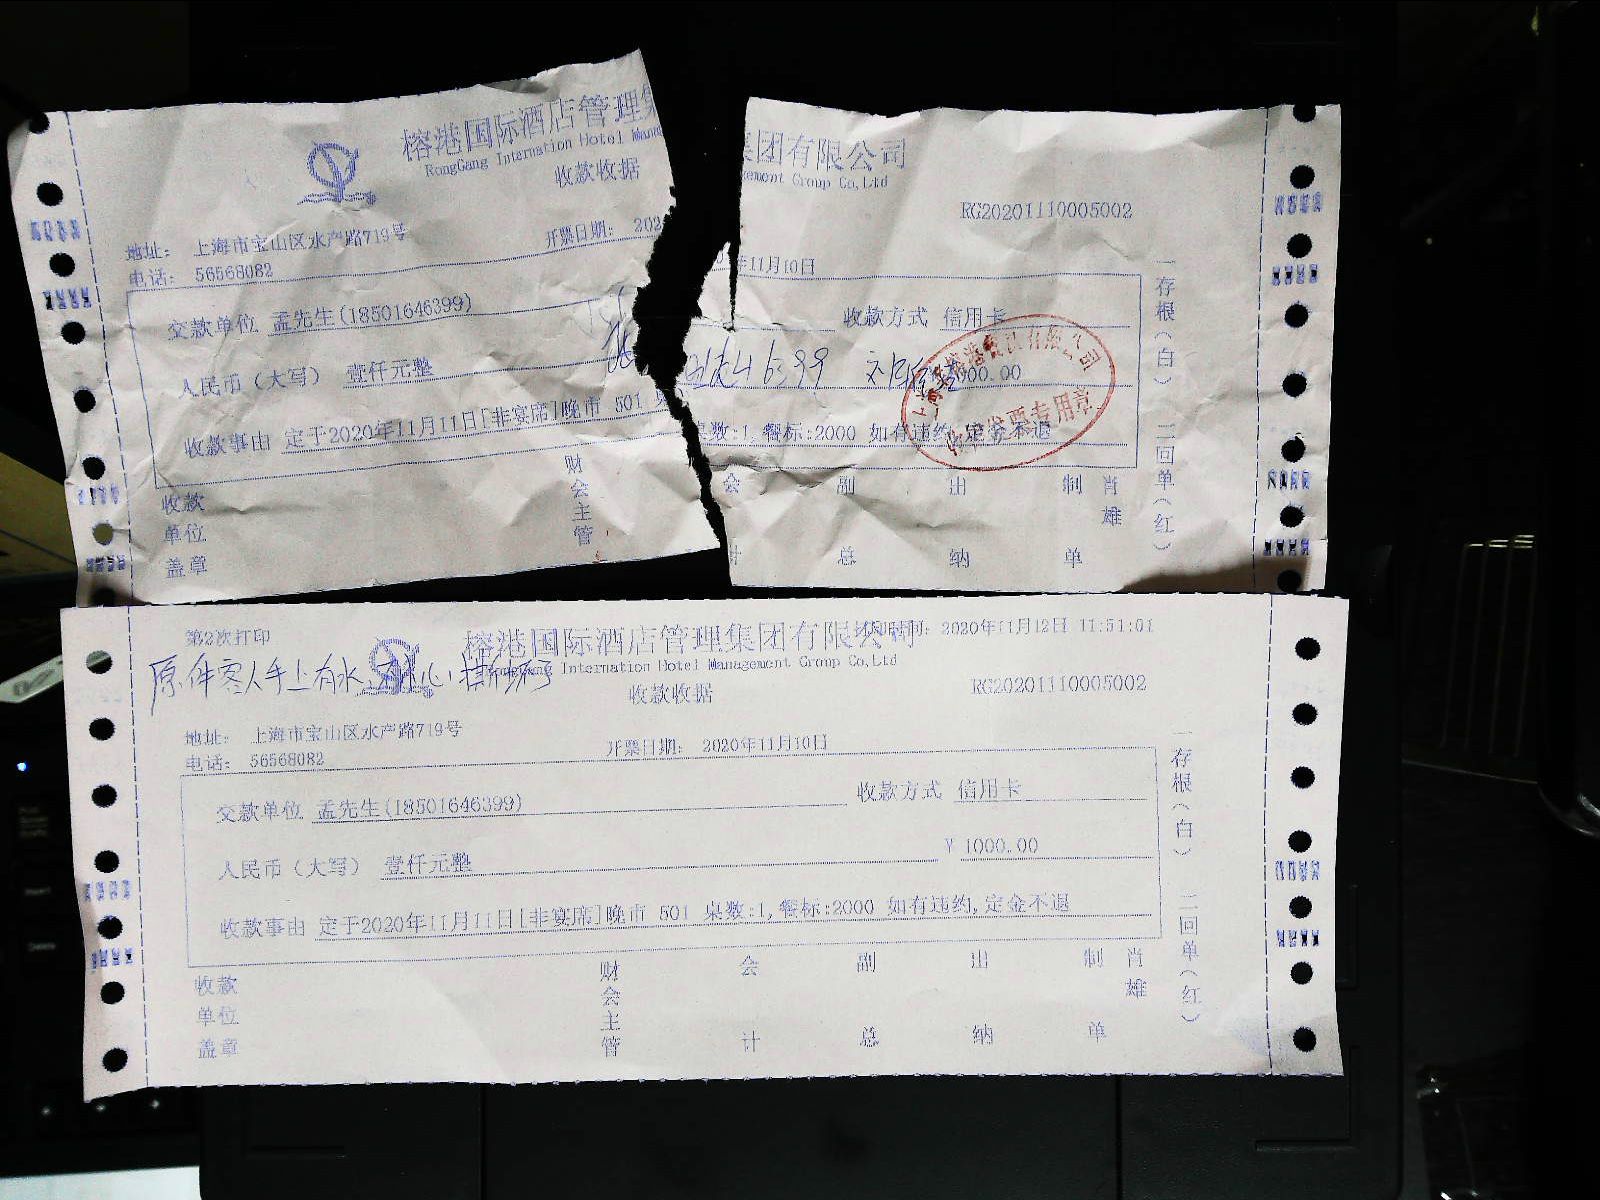 榕港国际酒店管理集团有限公司
RongGang Internation Hotel Management Group Co,Ltd
收款收据
RG20201110005002
地址： 上海市宝山区水产路719号
开票日期： 202 年11月10日
电话： 56568082
交款单位 孟先生(18501646399)
收款方式 信用卡
人民币（大写） 壹仟元整
000.00
收款事由 定于2020年11月11日[非宴席]晚市 501 桌数:1,餐标:2000 如有违约,定金不退
收款单位盖章
财会主管
会计
副总
出纳
制单
肖雄
一存根（白） 二回单（红）
发票专用章
第2次打印
2020年11月12日 11:51:01
榕港国际酒店管理集团有限公司
RongGang Internation Hotel Management Group Co,Ltd
原件客人手上有水
收款收据
RG20201110005002
地址： 上海市宝山区水产路719号
开票日期： 2020年11月10日
电话： 56568082
交款单位 孟先生(18501646399)
收款方式 信用卡
人民币（大写） 壹仟元整
¥ 1000.00
收款事由 定于2020年11月11日[非宴席]晚市 501 桌数:1,餐标:2000 如有违约,定金不退
收款单位盖章
财会主管
会计
副总
出纳
制单
肖雄
一存根（白） 二回单（红）